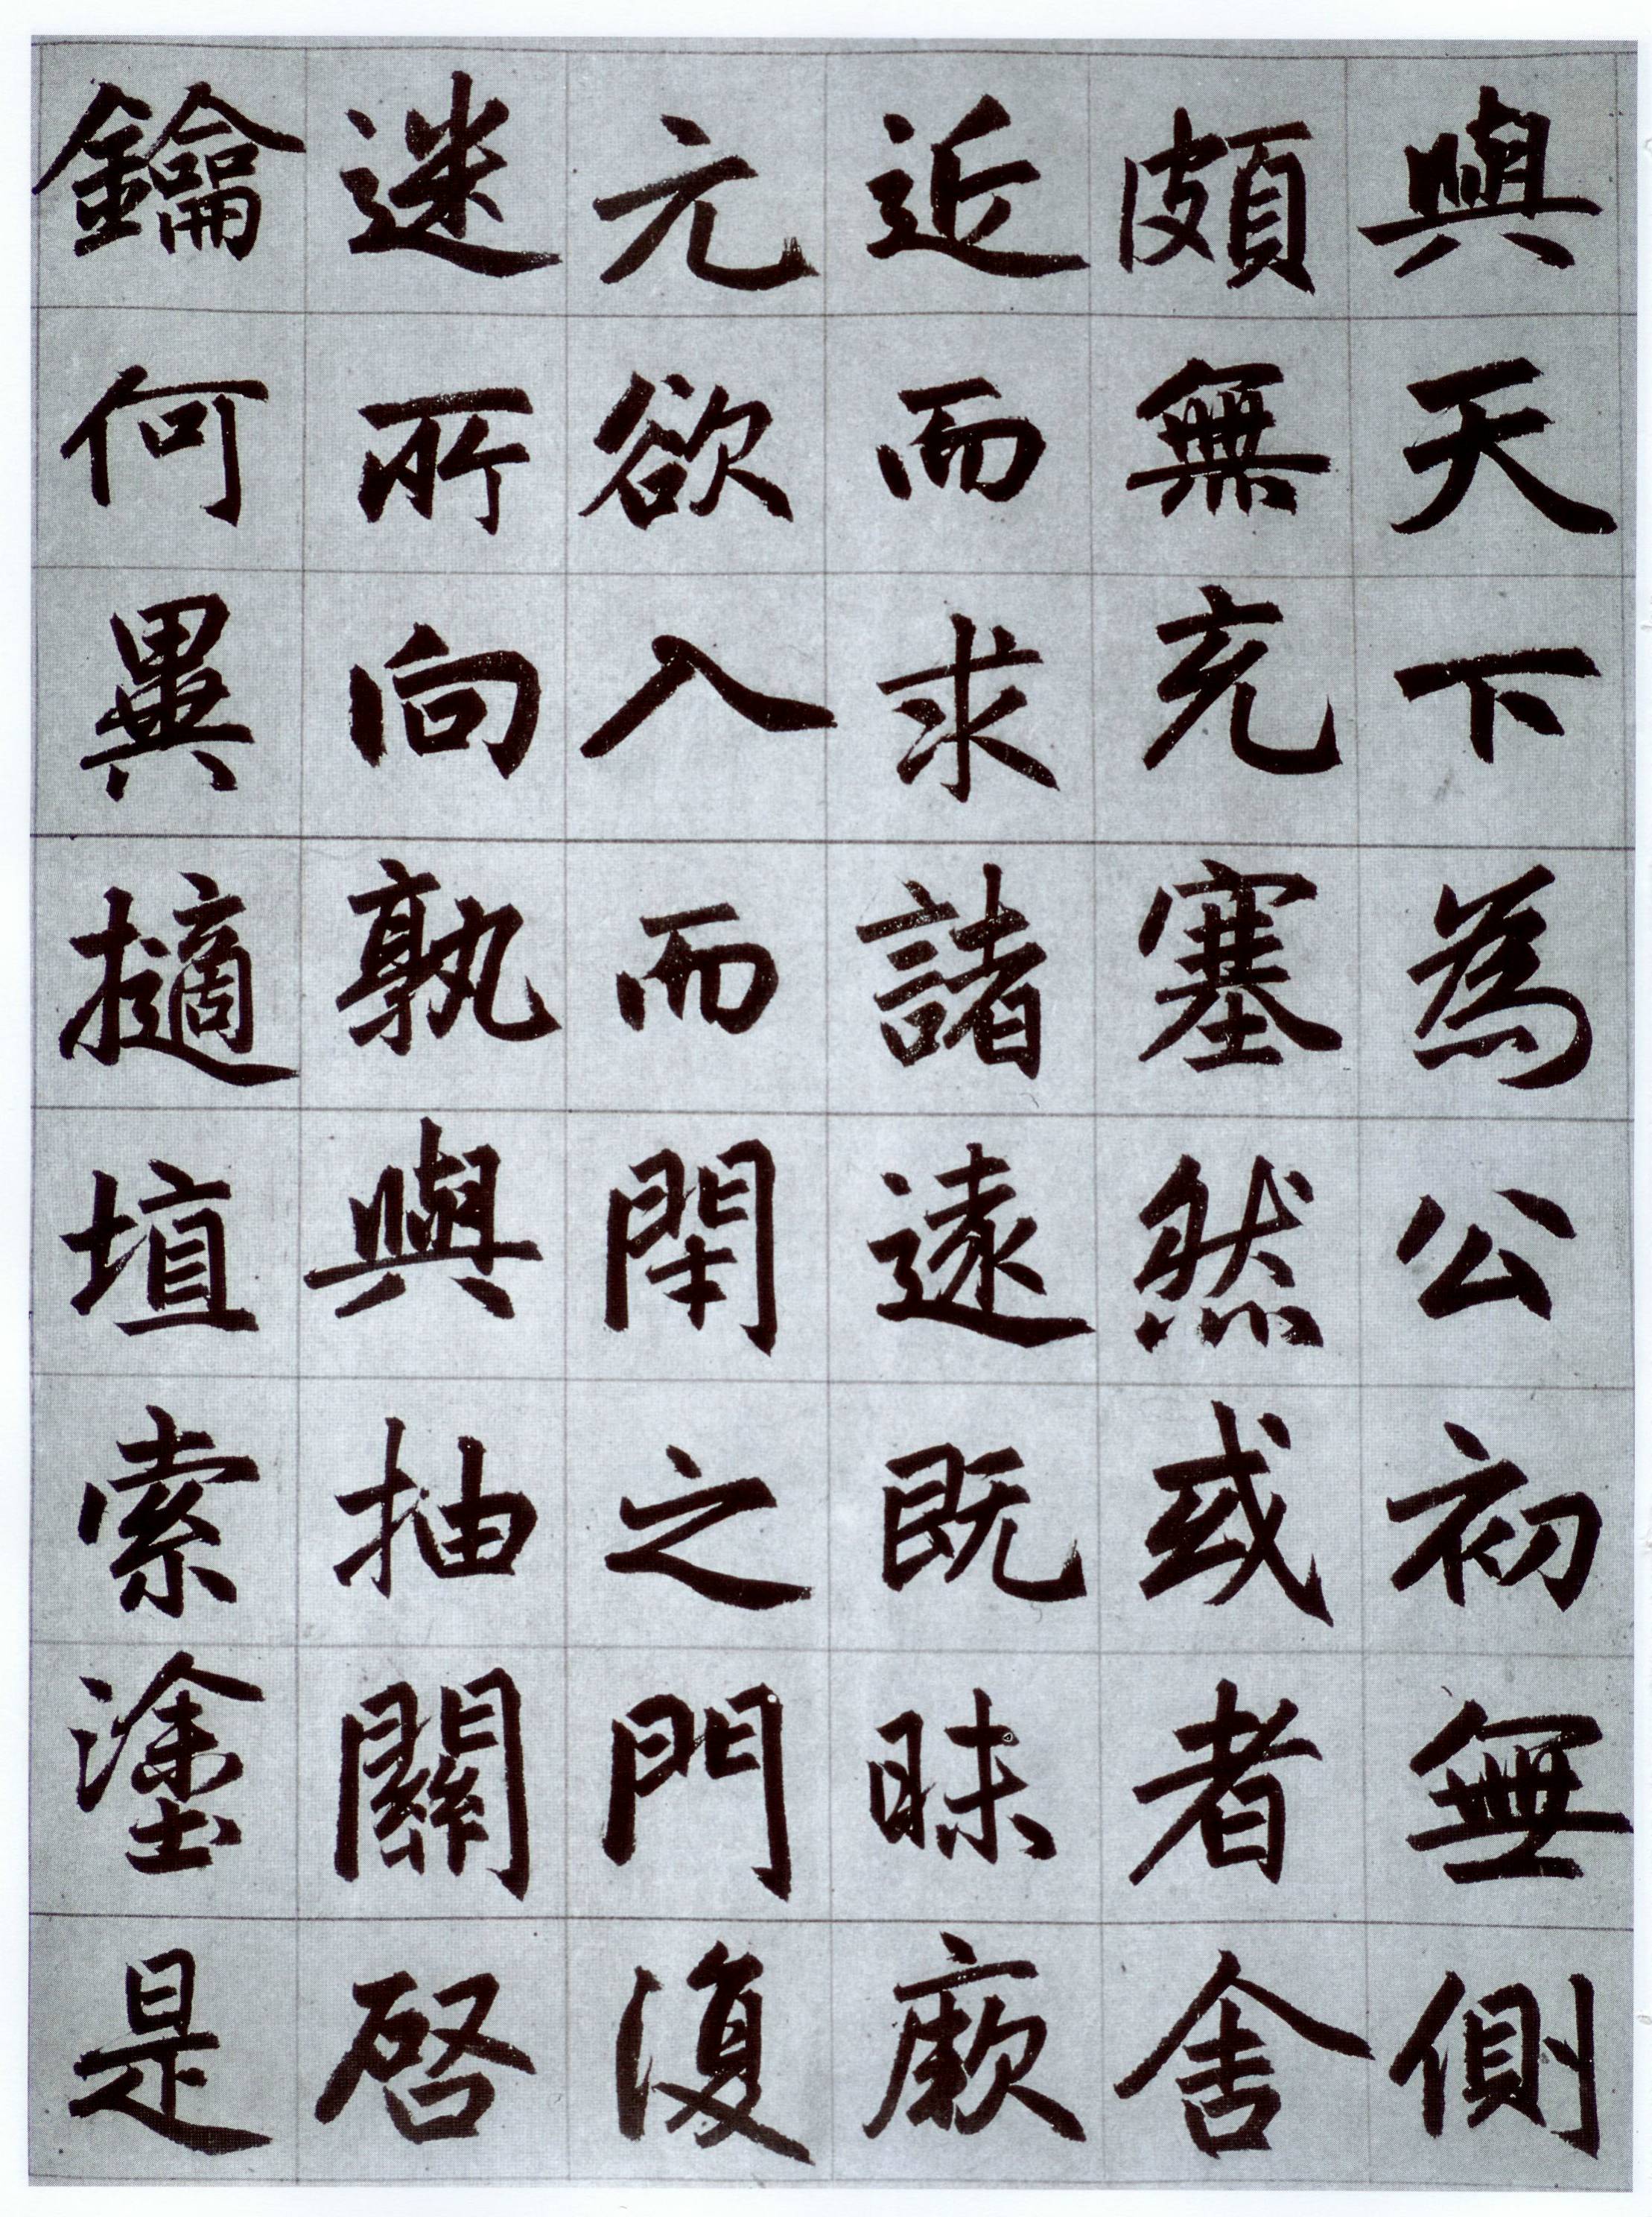 與天下為公初無側
頗無充塞然或者舍
近而求諸遠既昧厥
元欲入而閉之門復
迷所向孰與抽關啓
鑰何異擿埴索塗是